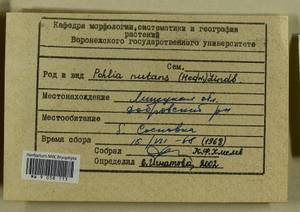 Кафедра морфологии,систематики и география
растений
Воронежского государственного университете
Сем.
Род и вид Pohlia nutans (Hedw.) Lindb.
Местонахождение Липецкая обл.
Добровский рн
Местообитание
б. Сосновка
Время сбора 15/VII -68 (1968)
Собрал К.Ф.Хмелев
Определил Е.Игнатова, 2002
Herbarium MW, Bryophyta